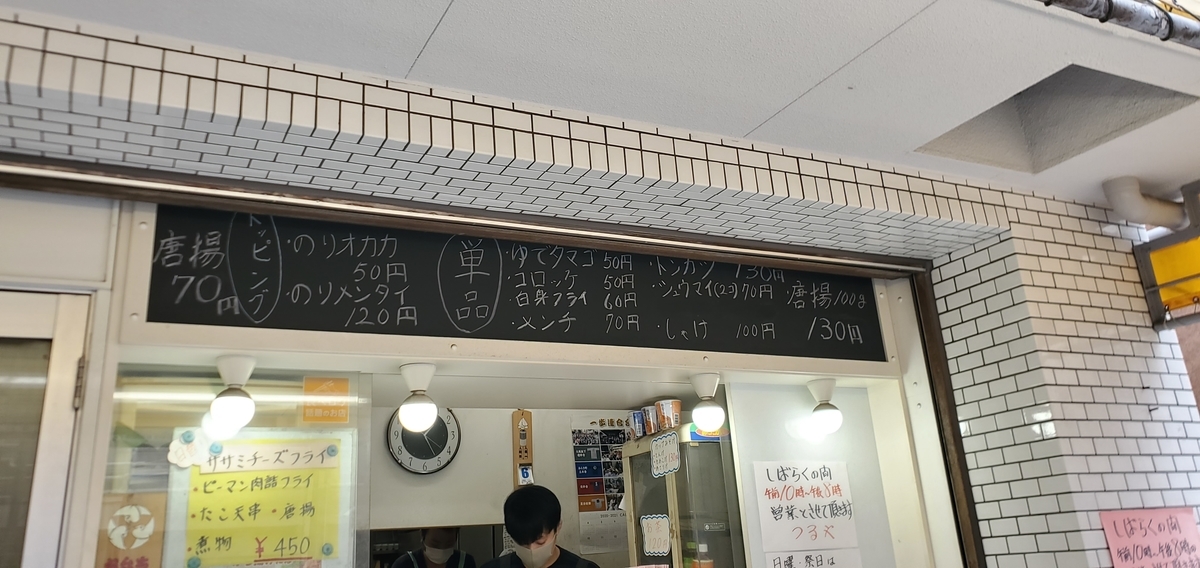 唐揚
70円
トッピング
・のりオカカ
50円
・のりメンタイ
120円
単品
・ゆでタマゴ 50円
・コロッケ 50円
・白身フライ 60円
・メンチ 70円
・トンカツ 130円
・シュウマイ(2コ)70円
・しゃけ 100円
唐揚100g
130円
ササミチーズフライ
・ピーマン肉詰フライ
・たこ天串・唐揚
・煮物 ¥450
しばらくの間
午前10時~午後8時
営業とさせて頂きます
つる太
日曜・祭日は
しばらくの間
午前10時~午後8時